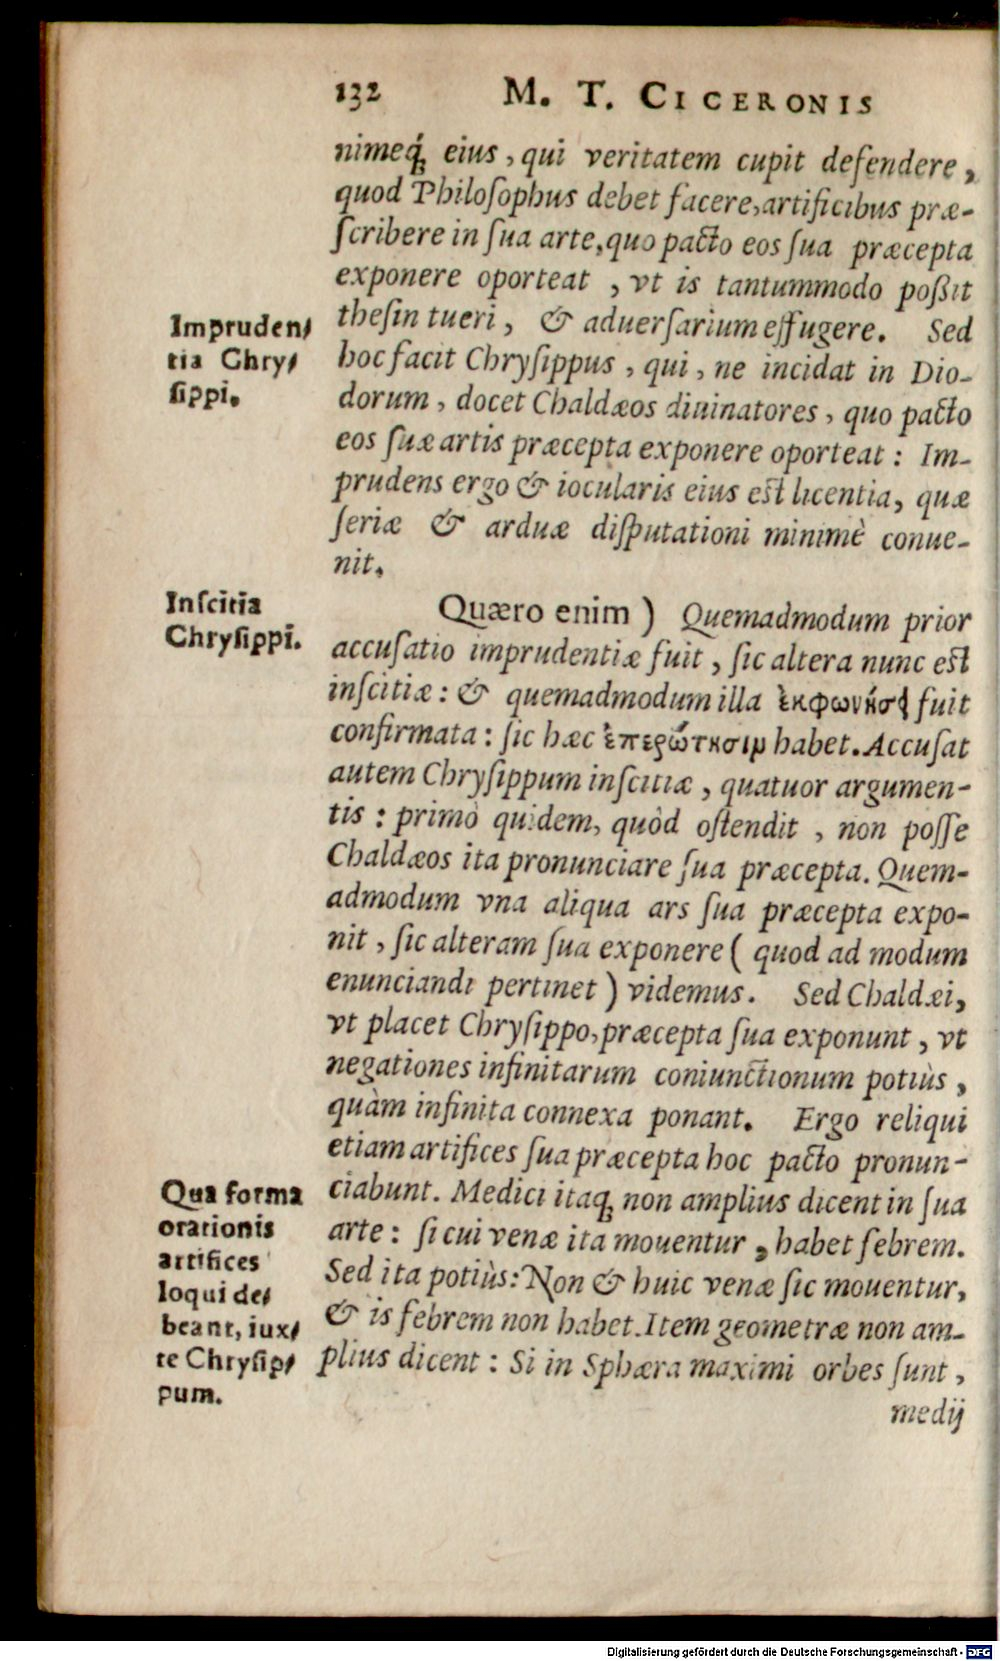 132 M. T. CICERONIS
nimeq́; eius, qui veritatem cupit defendere,
quod Philoſophus debet facere, artificibus præ-
ſcribere in ſua arte, quo pacto eos ſua præcepta
exponere oporteat, vt is tantummodo poßit
theſin tueri, & aduerſarium effugere. Sed
hoc facit Chryſippus, qui, ne incidat in Dio-
dorum, docet Chaldæos diuinatores, quo pacto
eos ſuæ artis præcepta exponere oporteat: Im-
prudens ergo & iocularis eius est licentia, quæ
ſeriæ & arduæ diſputationi minimè conue-
nit.
Impruden-
tia Chry-
ſippi.
Quæro enim) Quemadmodum prior
accuſatio imprudentiæ fuit, ſic altera nunc est
inſcitiæ: & quemadmodum illa ἐκφωνήσει fuit
confirmata: ſic hæc ἐπερώτησιμ habet. Accuſat
autem Chryſippum inſcitiæ, quatuor argumen-
tis: primò quidem, quòd oſtendit, non poſſe
Chaldæos ita pronunciare ſua præcepta. Quem-
admodum vna aliqua ars ſua præcepta expo-
nit, ſic alteram ſua exponere (quod ad modum
enunciandi pertinet) videmus. Sed Chaldæi,
vt placet Chryſippo, præcepta ſua exponunt, vt
negationes infinitarum coniunctionum potiùs,
quàm infinita connexa ponant. Ergo reliqui
etiam artifices ſua præcepta hoc pacto pronun-
ciabunt. Medici itaq; non amplius dicent in ſua
arte: ſi cui venæ ita mouentur, habet febrem.
Sed ita potiùs: Non & huic venæ ſic mouentur,
& is febrem non habet. Item geometræ non am-
plius dicent: Si in Sphæra maximi orbes ſunt,
medij
Inſcitia
Chryſippi.
Qua forma
orationis
artifices
loqui de-
beant, iux-
te Chryſip-
pum.
Digitalisierung gefördert durch die Deutsche Forschungsgemeinschaft - DFG